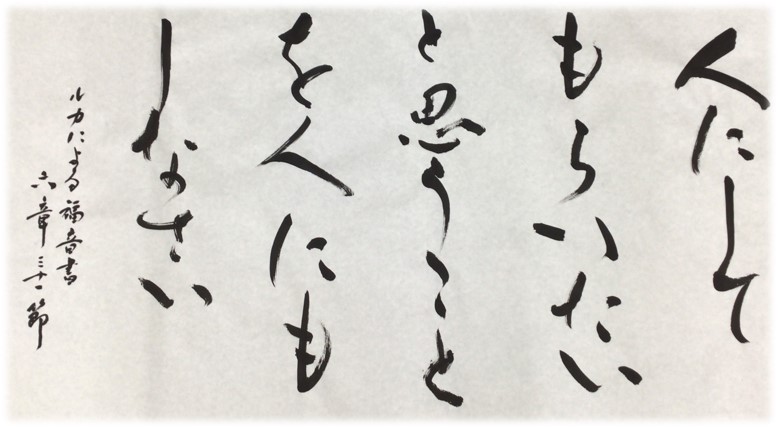 人にして
もらいたい
と思うこと
を人にも
しなさい
ルカによる福音書
六章三十一節